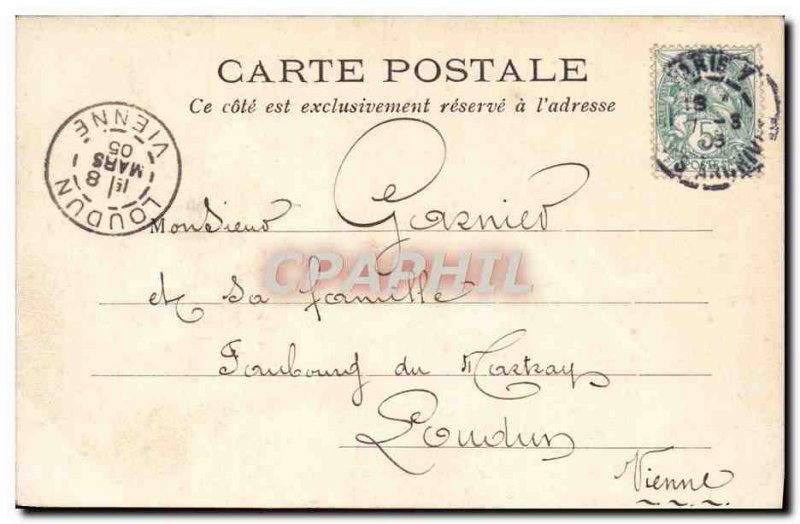 CARTE POSTALE
Ce côté est exclusivement réservé à l'adresse
LOUDUN
1E 8
MARS
05
VIENNE
5
Monsieur Gasnier
CPAPHIL
et sa famille
Faubourg du Martray
Loudun
Vienne